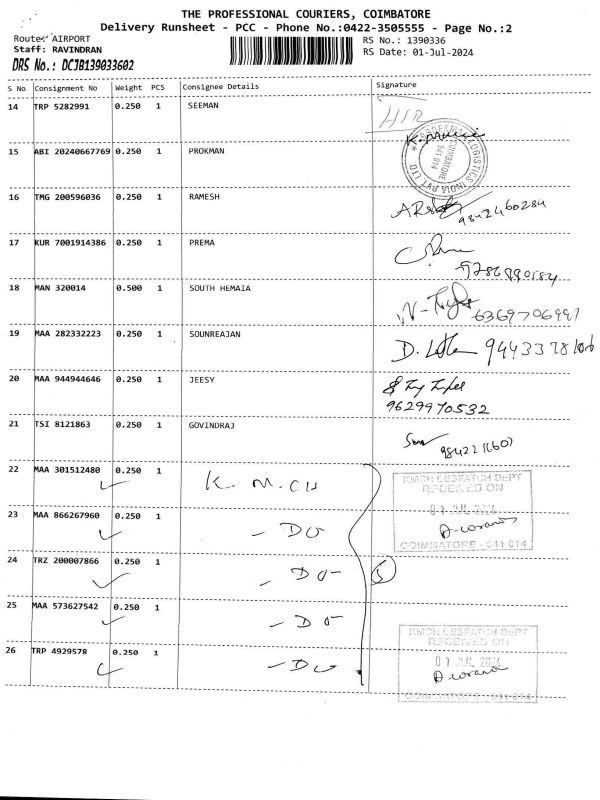 THE PROFESSIONAL COURIERS, COIMBATORE
Delivery Runsheet - PCC - Phone No.:0422-3505555 - Page No.:2
Route: AIRPORT RS No.: 1390336
Staff: RAVINDRAN RS Date: 01-Jul-2024
DRS No.: DCJB139033602
S No Consignment No Weight PCS Consignee Details Signature
14 TRP 5282991 0.250 1 SEEMAN
15 ABI 20240667769 0.250 1 PROKMAN
COIMBATORE
641 014
16 TMG 200596036 0.250 1 RAMESH
9842460284
17 KUR 7001914386 0.250 1 PREMA
18 MAN 320014 0.500 1 SOUTH HEMAIA
19 MAA 282332223 0.250 1 SOUNREAJAN
20 MAA 944944646 0.250 1 JEESY
9629970532
21 TSI 8121863 0.250 1 GOVINDRAJ
22 MAA 301512480 0.250 1 K. M. CH
KMCH DESPATCH DEPT
RECEIVED ON
01 JUL 2024
COIMBATORE - 641 014
23 MAA 866267960 0.250 1 - DO
24 TRZ 200007866 0.250 1 - DO - 5
25 MAA 573627542 0.250 1 - DO -
26 TRP 4929578 0.250 1 - DO
KMCH DESPATCH DEPT
RECEIVED ON
01 JUL 2024
COIMBATORE - 641 014